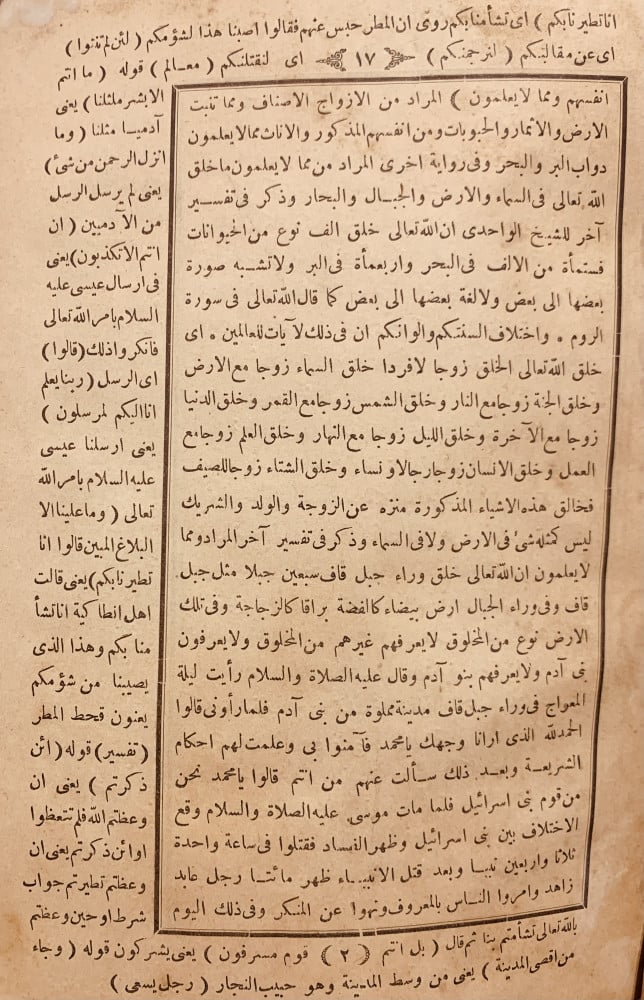 انا تطيرنا بكم ) اى تشأمنا بكم روى ان المطر حبس عنهم فقالوا اصبنا هذا لشؤمكم ( لئن لم تنتهوا )
اى عن مقالتكم ( لنرجمنكم ) ﴿ ١٧ ﴾ اى لنقتلنكم ( معالم ) قوله ( ما انتم
الا بشر مثلنا ) يعنى
آدميا مثلنا ( وما
انزل الرحمن من شئ )
يعنى لم يرسل الرسل
من الآدميين ( ان
انتم الا تكذبون ) يعنى
فى ارسال عيسى عليه
السلام بامر الله تعالى
فانكروا ذلك ( قالوا )
اى الرسل ( ربنا يعلم
انا اليكم لمرسلون )
يعنى ارسلنا عيسى
عليه السلام بامر الله
تعالى ( وما علينا الا
البلاغ المبين قالوا انا
تطيرنا بكم ) يعنى قالت
اهل انطاكية انا تشأ
منا بكم وهذا الذى
يصيبنا من شؤمكم
يعنون قحط المطر
( تفسير ) قوله ( ائن
ذكرتم ) يعنى ان
وعظتم الله فلم تتعظوا
او ائن ذكرتم يعنى ان
وعظتم تطيرتم جواب
شرط او حين وعظتم
انفسهم ومما لا يعلمون ) المراد من الازواج الاصناف ومما تنبت
الارض والاثمار والحبوبات ومن انفسهم المذكور والاناث مما لا يعلمون
دواب البر والبحر وفى رواية اخرى المراد من مما لا يعلمون ما خلق
الله تعالى فى السماء والارض والجبال والبحار وذكر فى تفسير
آخر للشيخ الواحدى ان الله تعالى خلق الف نوع من الحيوانات
فستمأة من الالف فى البحر واربعمأة فى البر ولا تشبه صورة
بعضها الى بعض ولا لغة بعضها الى بعض كما قال الله تعالى فى سورة
الروم ۰ واختلاف السنتكم والوانكم ان فى ذلك لآيات للعالمين ۰ اى
خلق الله تعالى الخلق زوجا لا فردا خلق السماء زوجا مع الارض
وخلق الجنة زوجا مع النار وخلق الشمس زوجا مع القمر وخلق الدنيا
زوجا مع الآخرة وخلق الليل زوجا مع النهار وخلق العلم زوجا مع
العمل وخلق الانسان زوجا رجالا ونساء وخلق الشتاء زوجا للصيف
فخالق هذه الاشياء المذكورة منزه عن الزوجة والولد والشريك
ليس كمثله شئ فى الارض ولا فى السماء وذكر فى تفسير آخر المراد ومما
لا يعلمون ان الله تعالى خلق وراء جبل قاف سبعين جبلا مثل جبل
قاف وفى وراء الجبال ارض بيضاء كالفضة براقا كالزجاجة وفى تلك
الارض نوع من المخلوق لا يعرفهم غيرهم من المخلوق ولا يعرفون
بنى آدم ولا يعرفهم بنو آدم وقال عليه الصلاة والسلام رأيت ليلة
المعراج فى وراء جبل قاف مدينة مملوة من بنى آدم فلما رأونى قالوا
الحمد لله الذى ارانا وجهك يا محمد فآمنوا بى وعلمت لهم احكام
الشريعة وبعد ذلك سألت عنهم من انتم قالوا يا محمد نحن
من قوم بنى اسرائيل فلما مات موسى عليه الصلاة والسلام وقع
الاختلاف بين بنى اسرائيل وظهر الفساد فقتلوا فى ساعة واحدة
ثلاثا واربعين نبيا وبعد قتل الانبياء ظهر مائتا رجل عابد
زاهد وامروا الناس بالمعروف ونهوا عن المنكر وفى ذلك اليوم
بالله تعالى تشأمتم بنا ثم قال ( بل انتم ﴿ ٢ ﴾ قوم مسرفون ) يعنى يشركون قوله ( وجاء
من اقصى المدينة ) يعنى من وسط المدينة وهو حبيب النجار ( رجل يسعى )